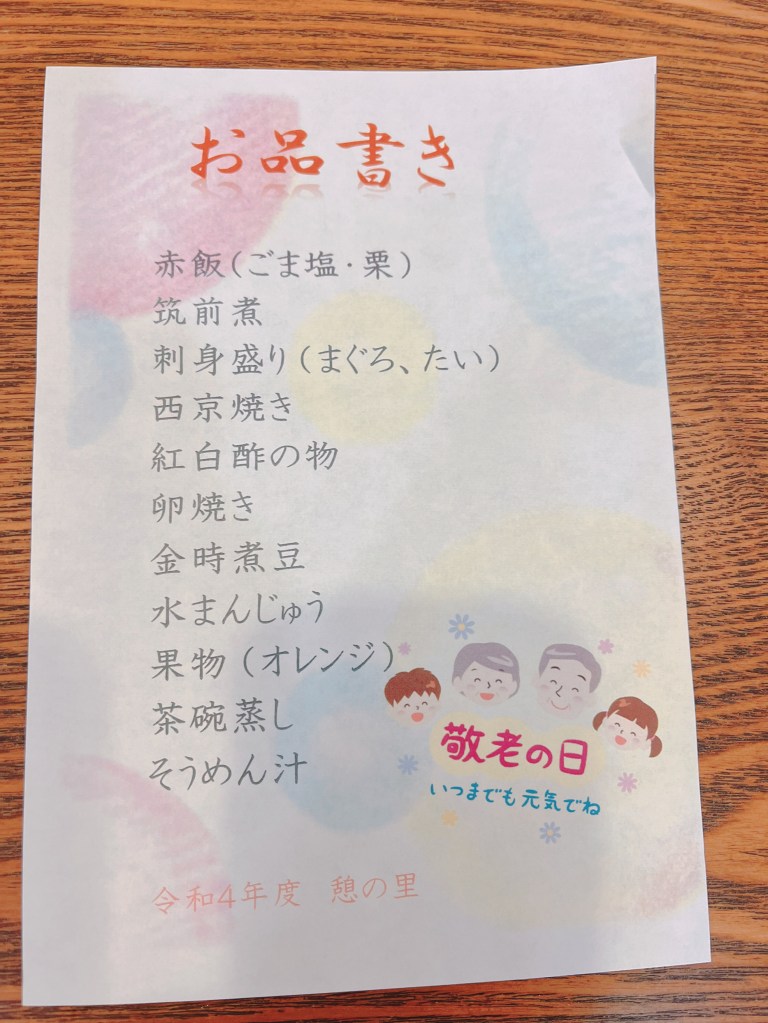 お品書き
赤飯(ごま塩・栗)
筑前煮
刺身盛り(まぐろ、たい)
西京焼き
紅白酢の物
卵焼き
金時煮豆
水まんじゅう
果物(オレンジ)
茶碗蒸し
そうめん汁
敬老の日
いつまでも元気でね
令和4年度 憩の里